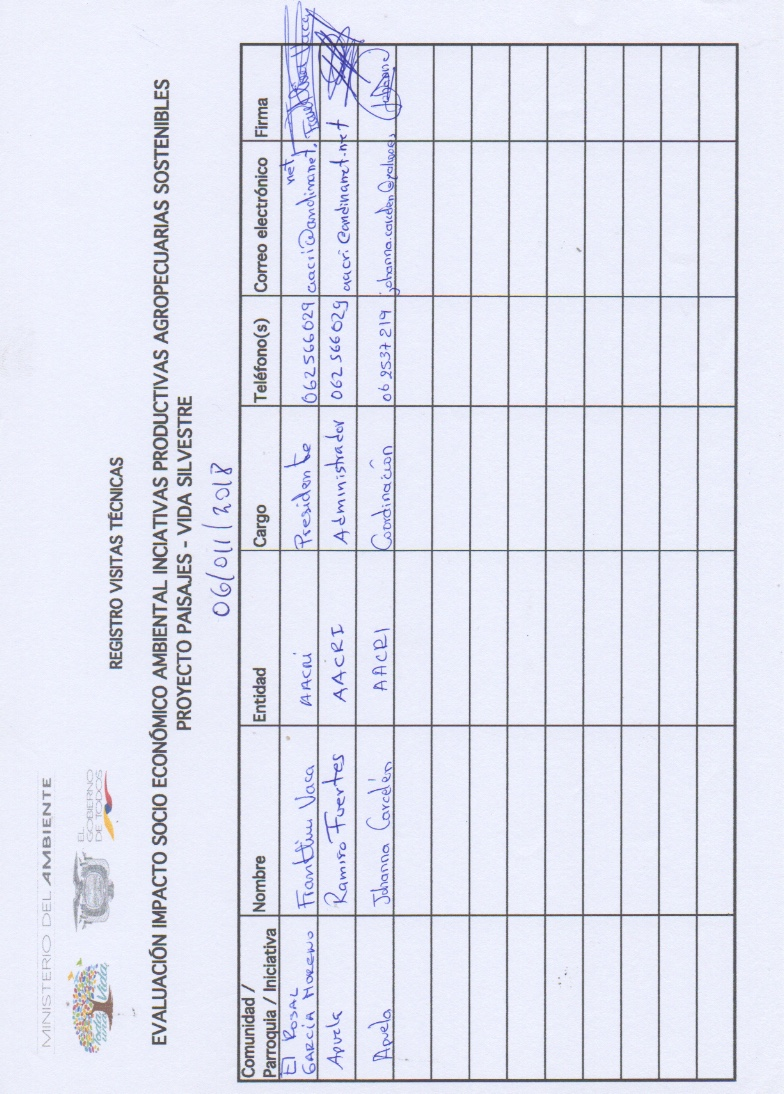 MINISTERIO DEL AMBIENTE
toda una Vida
EL GOBIERNO DE TODOS
REGISTRO VISITAS TÉCNICAS
EVALUACIÓN IMPACTO SOCIO ECONÓMICO AMBIENTAL INCIATIVAS PRODUCTIVAS AGROPECUARIAS SOSTENIBLES
PROYECTO PAISAJES - VIDA SILVESTRE
06/011/2018
Comunidad / Parroquia / Iniciativa Nombre Entidad Cargo Teléfono(s) Correo electrónico Firma
El Rosal García Moreno Franklin Vaca AACRI Presidente 062566029 aacri@andinanet.net Franklin Vaca
Apuela Ramiro Fuertes AACRI Administrador 062566029 aacri@andinanet.net
Apuela Johanna Carcelén AACRI Coordinación 062537219 Johanna